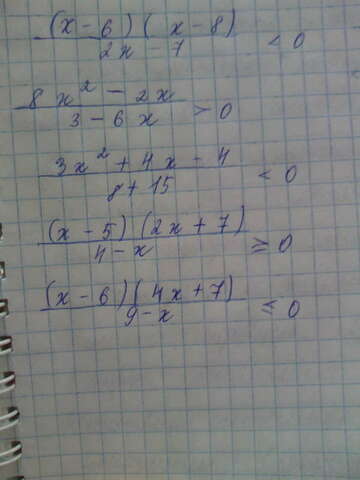 (x - 6)(x - 8)
2x - 7 < 0
8x² - 2x
3 - 6x > 0
3x² + 4x - 4
8 + 15 < 0
(x - 5)(2x + 7)
4 - x ≥ 0
(x - 6)(4x + 7)
9 - x ≤ 0